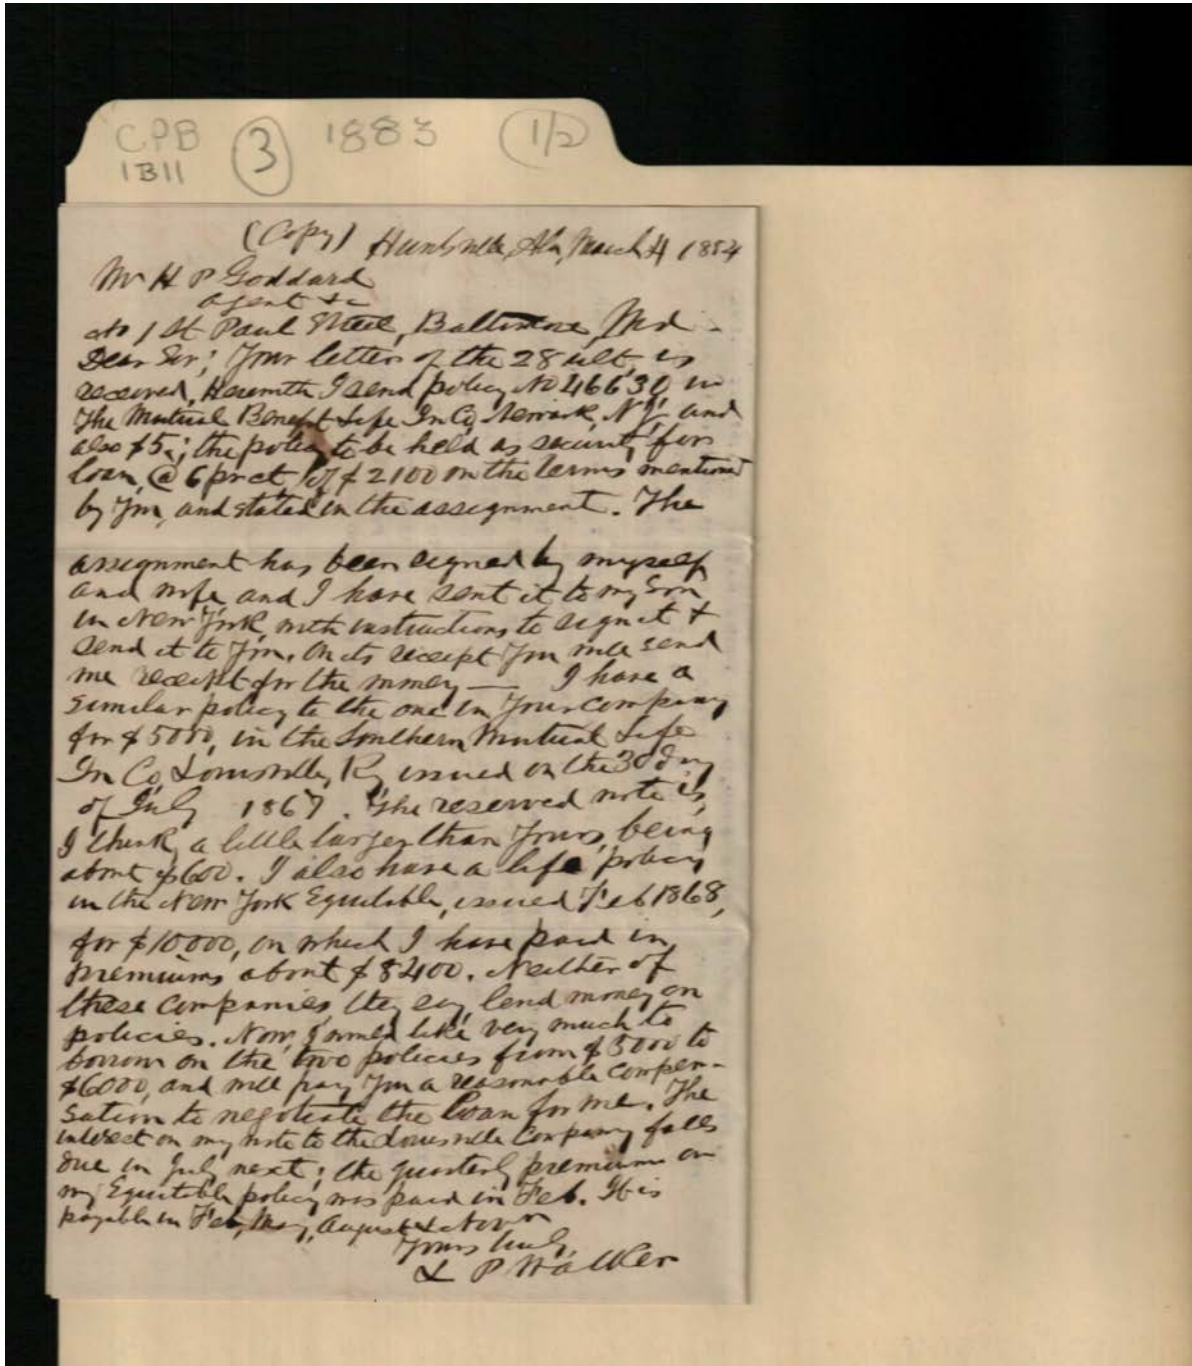 CPB
1B11
3
1883
1/2
(Copy) Huntsville, Ala, March 4 1884
Mr H P Goddard
Agent &c
No 1 St Paul Street, Baltimore, Md.
Dear Sir; Your letter of the 28 ult, is
received, Herewith I send policy No 46630 in
The Mutual Benefit Life In Co, Newark, NJ, and
also $5.; the policy to be held as security for
loan, @ 6 pr ct, of $2100 on the terms mentioned
by you, and stated in the assignment. The
assignment has been signed by myself
and wife, and I have sent it to my son
in New York, with instructions to sign it &
send it to you. On its receipt you will send
me receipt for the money — I have a
similar policy to the one in your company
for $5000, in the Southern Mutual Life
In Co, Louisville, Ky, issued on the 30 day
of July 1867. The reserved note is,
I think, a little larger than yours, being
about $600. I also have a life policy
in the New York Equitable, issued Feb 1868,
for $10000, on which I have paid in
premiums about $8400. Neither of
these companies, they say, lend money on
policies. Now, I would like very much to
borrow on the two policies from $5000 to
$6000, and will pay you a reasonable compen-
sation to negotiate the loan for me. The
interest on my note to the Louisville Company falls
due in July next; the quarterly premium on
my Equitable policy was paid in Feb. It is
payable in Feb, May, August & Novr
Yours truly,
L P Walker